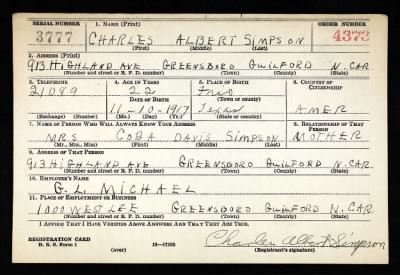 SERIAL NUMBER 1. NAME (Print) ORDER NUMBER
3777 CHARLES ALBERT SIMPSON 4373
(First) (Middle) (Last)
2. ADDRESS (Print)
913 HIGHLAND AVE GREENSBORO GUILFORD N. CAR.
(Number and street or R. F. D. number) (Town) (County) (State)
3. TELEPHONE 4. AGE IN YEARS 5. PLACE OF BIRTH 6. COUNTRY OF CITIZENSHIP
21089 22 FRIO
DATE OF BIRTH (Town or county)
11-10-1917 TEXAS AMER
(Exchange) (Number) (Mo.) (Day) (Yr.) (State or country)
7. NAME OF PERSON WHO WILL ALWAYS KNOW YOUR ADDRESS 8. RELATIONSHIP OF THAT PERSON
MRS COBA DAVIS SIMPSON MOTHER
(Mr., Mrs., Miss) (First) (Middle) (Last)
9. ADDRESS OF THAT PERSON
913 HIGHLAND AVE GREENSBORO GUILFORD N. CAR.
(Number and street or R. F. D. number) (Town) (County) (State)
10. EMPLOYER'S NAME
G. L. MICHAEL
11. PLACE OF EMPLOYMENT OR BUSINESS
1000 WEST LEE GREENSBORO GUILFORD N. CAR.
(Number and street or R. F. D. number) (Town) (County) (State)
I AFFIRM THAT I HAVE VERIFIED ABOVE ANSWERS AND THAT THEY ARE TRUE.
REGISTRATION CARD Charles Albert Simpson
D. S. S. Form 1 (over) 16—17105 (Registrant's signature)